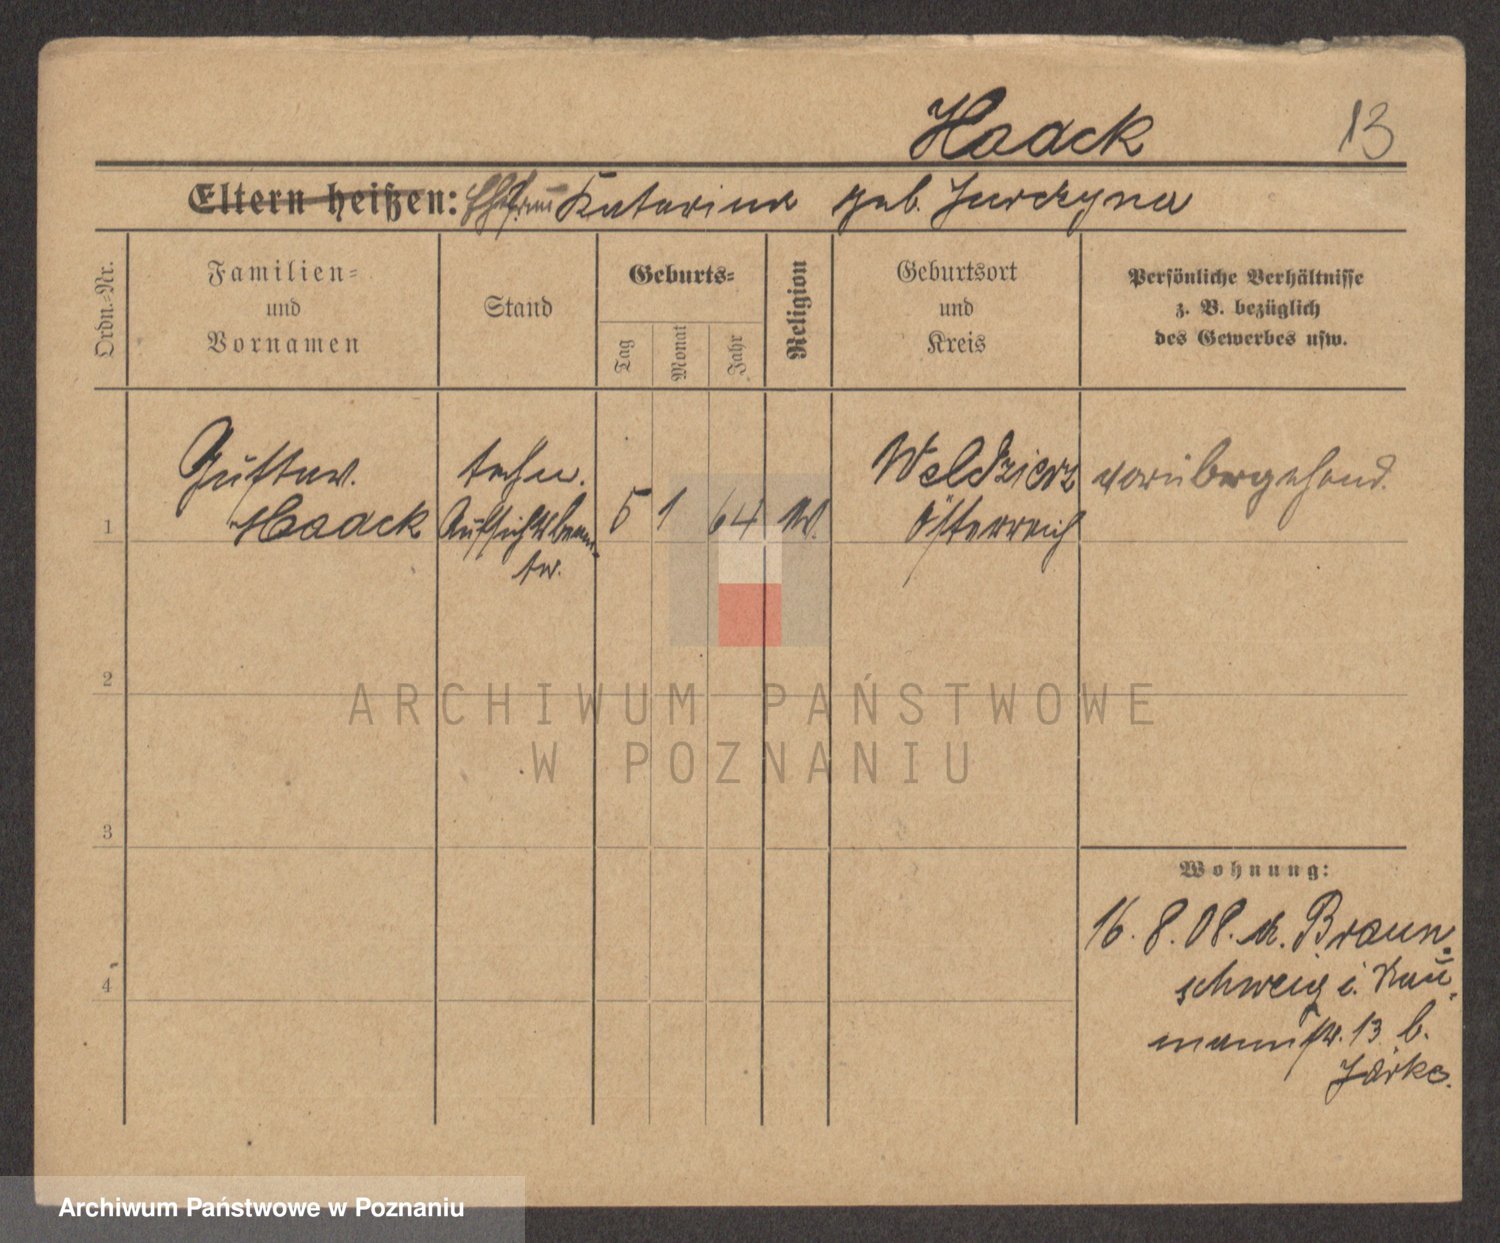 Haack 13
Eltern heißen: Ehefrau Katarina geb. Jurczyna
Ordn.-Nr.
Familien-
und
Vornamen
Stand
Geburts-
Tag
Monat
Jahr
Religion
Geburtsort
und
Kreis
Persönliche Verhältnisse
z. B. bezüglich
des Gewerbes usw.
Gustav
techn.
Weldzierz
vorübergehend.
1
Haack
Aufsichtsbeam-
5 1 64
Österreich
ter.
2
ARCHIWUM PAŃSTWOWE
W POZNANIU
3
Wohnung:
16. 8. 08. Braun-
schweig i. Nau-
mannstr. 13 b.
4
Archiwum Państwowe w Poznaniu